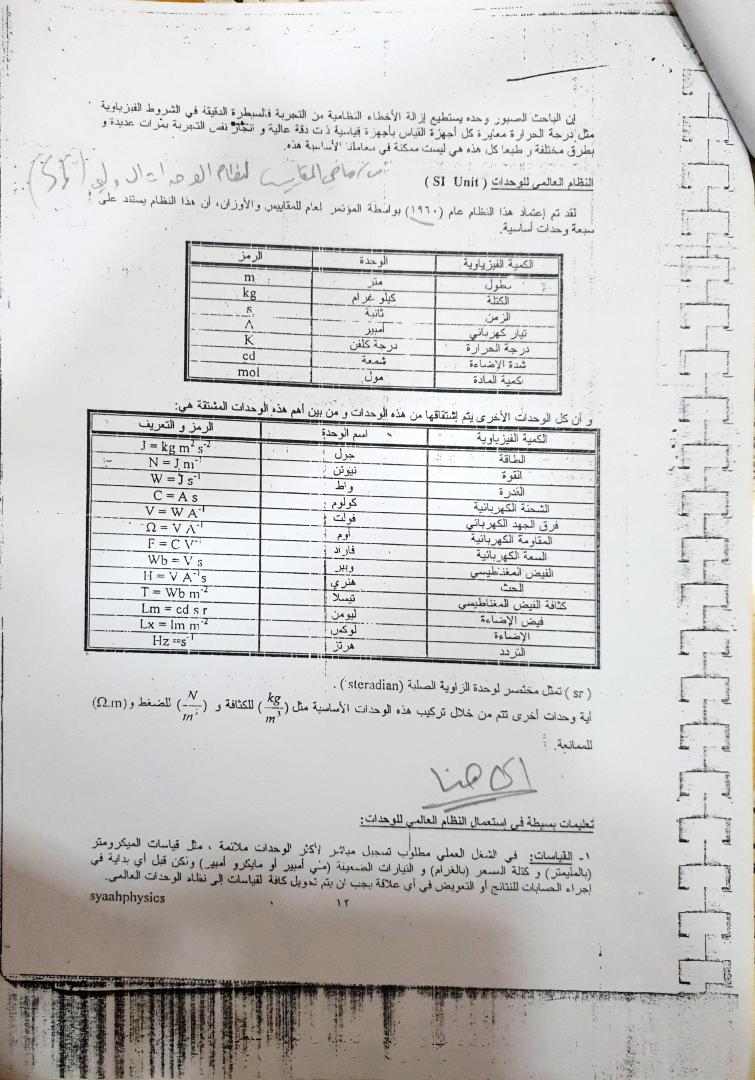 إن الباحث الصبور وحده يستطيع إزالة الأخطاء النظامية من التجربة فالسيطرة الدقيقة في الشروط الفيزياوية
مثل درجة الحرارة معايرة كل أجهزة القياس بأجهزة قياسية ذت دقة عالية و انجاز نفس التجربة بمرات عديدة و
بطرق مختلفة و طبعا كل هذه هي ليست ممكنة في معاملنا الأساسية هذه.
النظام العالمي للوحدات ( SI Unit )
س/ ماهي المقاييس لنظام الوحدات الدولي (SI)
لقد تم إعتماد هذا النظام عام (١٩٦٠) بواسطة المؤتمر لعام للمقاييس والأوزان، أن هذا النظام يستند على
سبعة وحدات أساسية.
الكمية الفيزياوية الوحدة الرمز
طول متر m
الكتلة كيلو غرام kg
الزمن ثانية s
تيار كهربائي أمبير A
درجة الحرارة درجة كلفن K
شدة الإضاءة شمعة cd
كمية المادة مول mol
و أن كل الوحدات الأخرى يتم إشتقاقها من هذه الوحدات و من بين أهم هذه الوحدات المشتقة هي:
الكمية الفيزياوية اسم الوحدة الرمز و التعريف
الطاقة جول J = kg m² s⁻²
القوة نيوتن N = J m⁻¹
القدرة واط W = J s⁻¹
الشحنة الكهربائية كولوم C = A s
فرق الجهد الكهربائي فولت V = W A⁻¹
المقاومة الكهربائية أوم Ω = V A⁻¹
السعة الكهربائية فاراد F = C V⁻¹
الفيض المغناطيسي ويبر Wb = V s
الحث هنري H = V A⁻¹ s
كثافة الفيض المغناطيسي تيسلا T = Wb m⁻²
فيض الإضاءة ليومن Lm = cd s r
الإضاءة لوكس Lx = lm m⁻²
التردد هرتز Hz = s⁻¹
( sr ) تمثل مختصر لوحدة الزاوية الصلبة (steradian) .
أية وحدات أخرى تتم من خلال تركيب هذه الوحدات الأساسية مثل (kg/m³) للكثافة و (N/m²) للضغط و (Ω.m)
للممانعة.
الى هنا
تعليمات بسيطة في إستعمال النظام العالمي للوحدات:
١- القياسات: في الشغل العملي مطلوب تسجيل مباشر لأكثر الوحدات ملائمة ، مثل قياسات الميكرومتر
(بالمليمتر) و كتلة المسعر (بالغرام) و التيارات الضعيفة (ملي أمبير أو مايكرو أمبير) ولكن قبل أي بداية في
إجراء الحسابات للنتائج أو التعويض في أي علاقة يجب ان يتم تحويل كافة لقياسات إلى نظام الوحدات العالمي.
syaahphysics
١٢